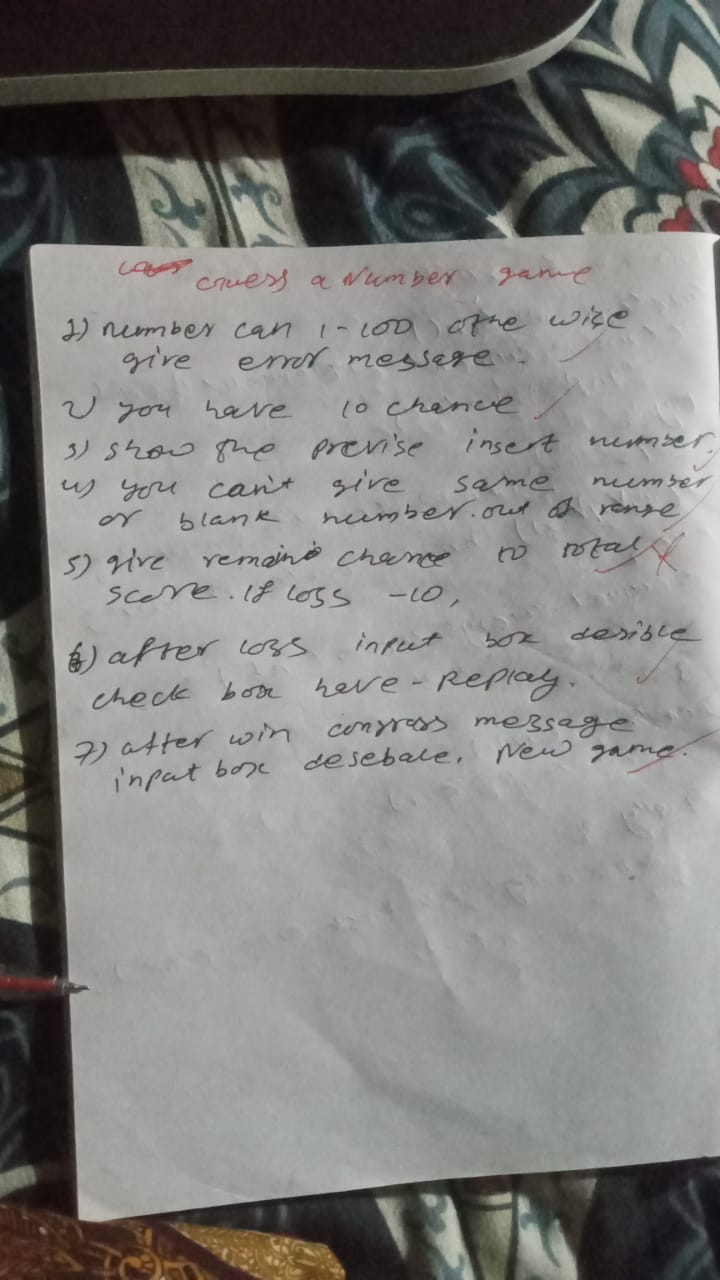 Guess a Number game
1) number can 1-100 othe wise
give error message.
2) you have 10 chance
3) show the previse insert number.
4) you can't give same number
or blank number. out of range
5) give remaind chance to total
score. If loss -10,
6) after loss input box desible
check box have - Replay.
7) after win congrass message
input box desebale. New game.